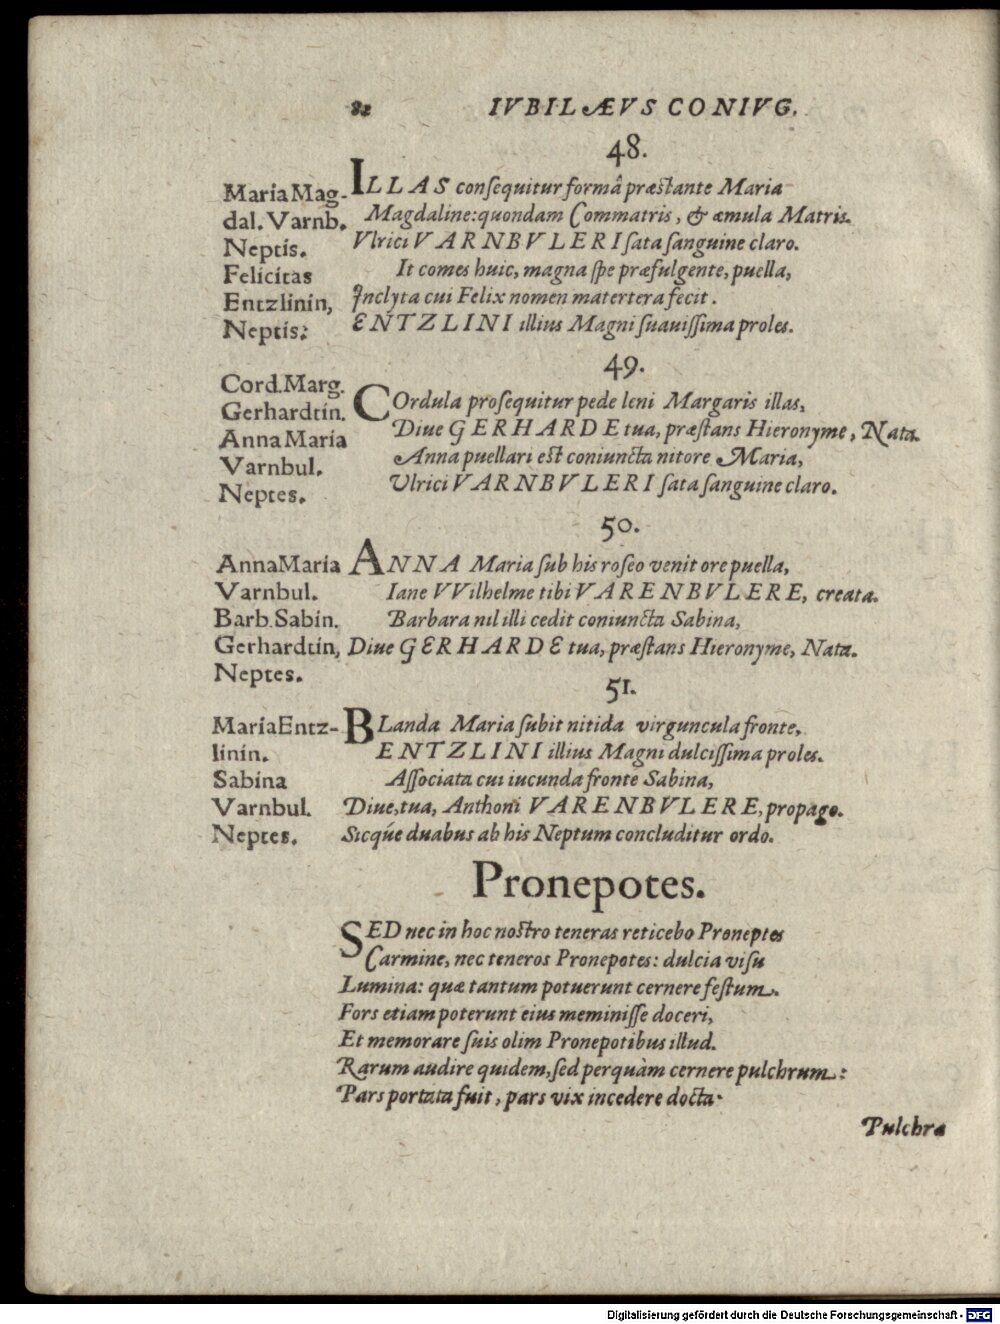 82 IVBILÆVS CONIVG.
48.
Maria Mag-
dal. Varnb.
Neptis.
Felicitas
Entzlinin,
Neptis:
ILLAS conſequitur formâ præstante Maria
Magdaline: quondam Commatris, & æmula Matris.
Vlrici VARNBVLERI ſata ſanguine claro.
It comes huic, magna ſpe præfulgente, puella,
Inclyta cui Felix nomen matertera fecit.
ENTZLINI illius Magni ſuauiſſima proles.
49.
Cord. Marg.
Gerhardtin.
Anna Maria
Varnbul.
Neptes.
COrdula proſequitur pede leni Margaris illas,
Diue GERHARDE tua, præſtans Hieronyme, Nata.
Anna puellari est coniuncta nitore Maria,
Vlrici VARNBVLERI ſata ſanguine claro.
50.
Anna Maria
Varnbul.
Barb. Sabin.
Gerhardtin,
Neptes.
ANNA Maria ſub his roſeo venit ore puella,
Iane VVilhelme tibi VARENBVLERE, creata.
Barbara nil illi cedit coniuncta Sabina,
Diue GERHARDE tua, præſtans Hieronyme, Nata.
51.
Maria Entz-
linin.
Sabina
Varnbul.
Neptes.
BLanda Maria ſubit nitida virguncula fronte,
ENTZLINI illius Magni dulciſſima proles.
Aſſociata cui iucunda fronte Sabina,
Diue, tua, Anthoni VARENBVLERE, propago.
Sicq́ue duabus ab his Neptum concluditur ordo.
Pronepotes.
SED nec in hoc nostro teneras reticebo Proneptes
Carmine, nec teneros Pronepotes: dulcia viſu
Lumina: quæ tantum potuerunt cernere feſtum.
Fors etiam poterunt eius meminiſſe doceri,
Et memorare ſuis olim Pronepotibus illud.
Rarum audire quidem, ſed perquàm cernere pulchrum:
Pars portata fuit, pars vix incedere docta.
Pulchra
Digitalisierung gefördert durch die Deutsche Forschungsgemeinschaft - DFG